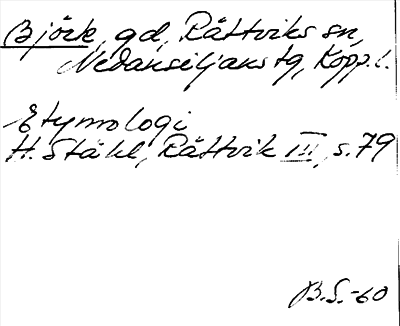 Björk, gd, Rättviks sn,
Nedansiljans tg, Kopp. l.
Etymologi
H. Ståhl, Rättvik III, s. 79
B.S.-60